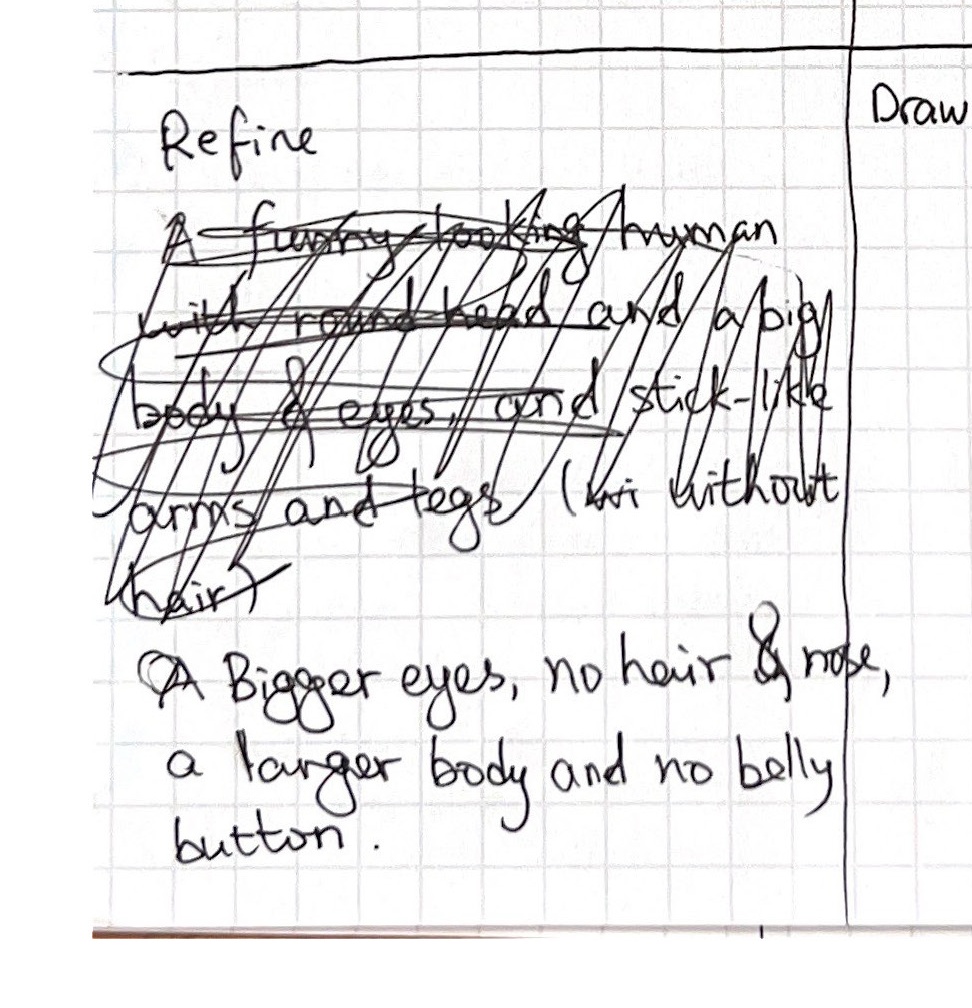 Draw
Refine
A funny looking human
with round head and a big
body & eyes, and stick-like
arms and legs (wi without
hair)
A Bigger eyes, no hair & nose,
a larger body and no belly
button.